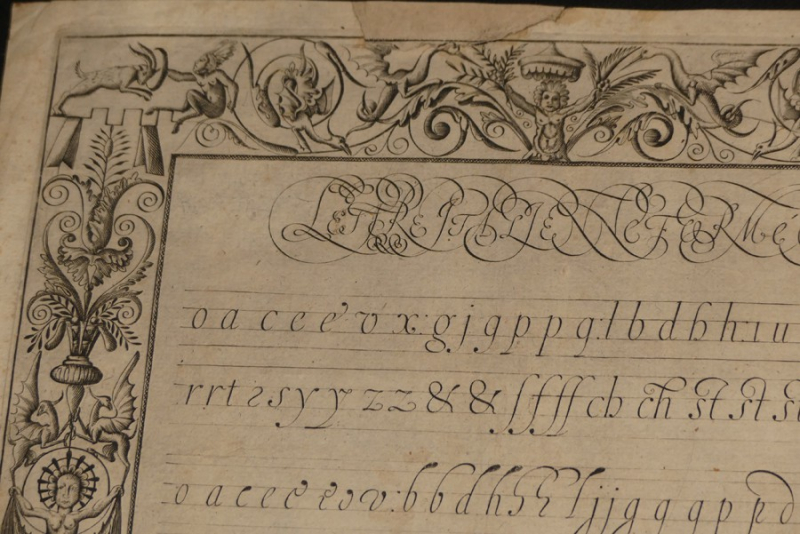 LETTRE ITALIENNE FORMÉ
o a c e e v x: g j g p p q: l b d h h: ı u
r r t s s y y z z & & ſ f ff ch ch st st
o a c e e e e o v: b b d h h h l j j g g q q p p